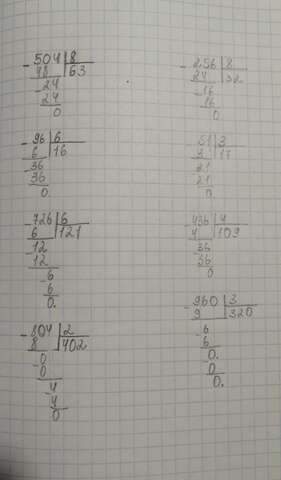 - 504 | 8
48 | 63
- 24
24
0
- 96 | 6
6 | 16
- 36
36
0.
- 726 | 6
6 | 121
- 12
12
- 6
6
0.
- 804 | 2
8 | 402
- 0
0
- 4
4
0
- 256 | 8
24 | 32
- 16
16
0
51 | 3
3 | 17
21
21
0.
- 436 | 4
4 | 109
36
- 36
0
- 960 | 3
9 | 320
- 6
6
0.
0
0.